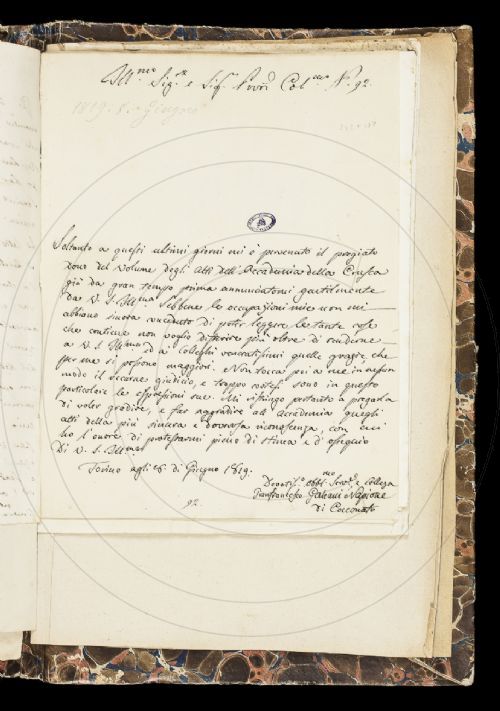 Ill.mo Sig.re e Sig. Pron Col.mo N.° 92.
1819. 8. Giugno
Soltanto a questi ultimi giorni mi è pervenuto il pregiato
dono del volume degli Atti dell'Accademia della Crusca
già da gran tempo prima annunciatomi gentilmente
da V. S. Ill.ma Sebbene le occupazioni mie non mi
abbiano sinora conceduto di poter leggere le tante cose
che contiene non voglio differire più oltre di renderne
a V. S. Ill.ma ed a' Colleghi veneratissimi quelle grazie, che
per me si possono maggiori. Non tocca poi a me in nessun
modo il recarne giudizio, e troppo cortesi sono in questo
particolare le espressioni sue. Mi ristringo pertanto a pregarla
di voler gradire, e far aggradire all'Accademia questi
atti della più sincera e dovuta riconoscenza, con cui
ho l'onore di protestarmi pieno di stima e di ossequio
Di V. S. Ill.ma
Torino agli 8 di Giugno 1819.
Devotis.o obbl.mo Serv.e e Collega
Gianfrancesco Galeani Napione
di Cocconato
92.